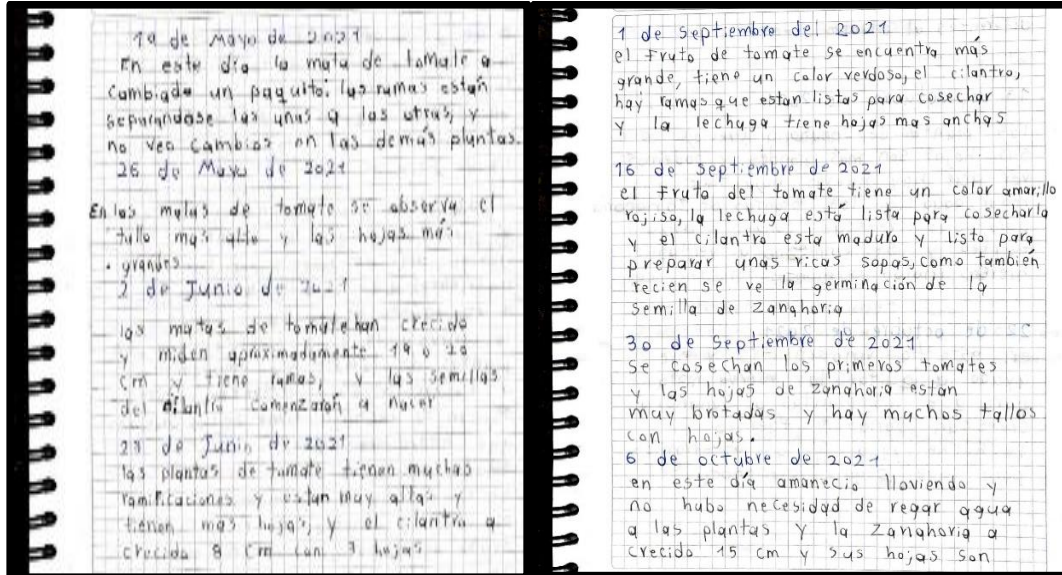 19 de Mayo de 2021
En este dia la mata de tomate a
cambiado un poquito: las ramas están
separandose las unas a las otras, y
no veo cambios en las demás plantas.
26 de Mayo de 2021
En las matas de tomate se observa el
tallo más alto y las hojas más
grandes
2 de Junio de 2021
las matas de tomate han crecido
y miden aproximadamente 19 o 20
cm y tiene ramas, y las semillas
del cilantro comenzarón a nacer
23 de Junio de 2021
las plantas de tomate tienen muchas
ramificaciones y estan muy altas y
tienen mas hojas, y el cilantro a
crecido 8 cm con 3 hojas
1 de Septiembre del 2021
el fruto de tomate se encuentra más
grande, tiene un color verdoso, el cilantro,
hay ramas que estan listas para cosechar
y la lechuga tiene hojas mas anchas
16 de Septiembre de 2021
el fruto del tomate tiene un color amarillo
rojiso, la lechuga está lista para cosecharla
y el cilantro esta maduro y listo para
preparar unas ricas sopas, como también
recien se ve la germinación de la
semilla de zanahoria
30 de Septiembre de 2021
se cosechan los primeros tomates
y las hojas de zanahoria están
muy brotadas y hay muchos tallos
con hojas.
6 de octubre de 2021
en este día amanecio lloviendo y
no hubo necesidad de regar agua
a las plantas y la zanahoria a
crecido 15 cm y sus hojas son